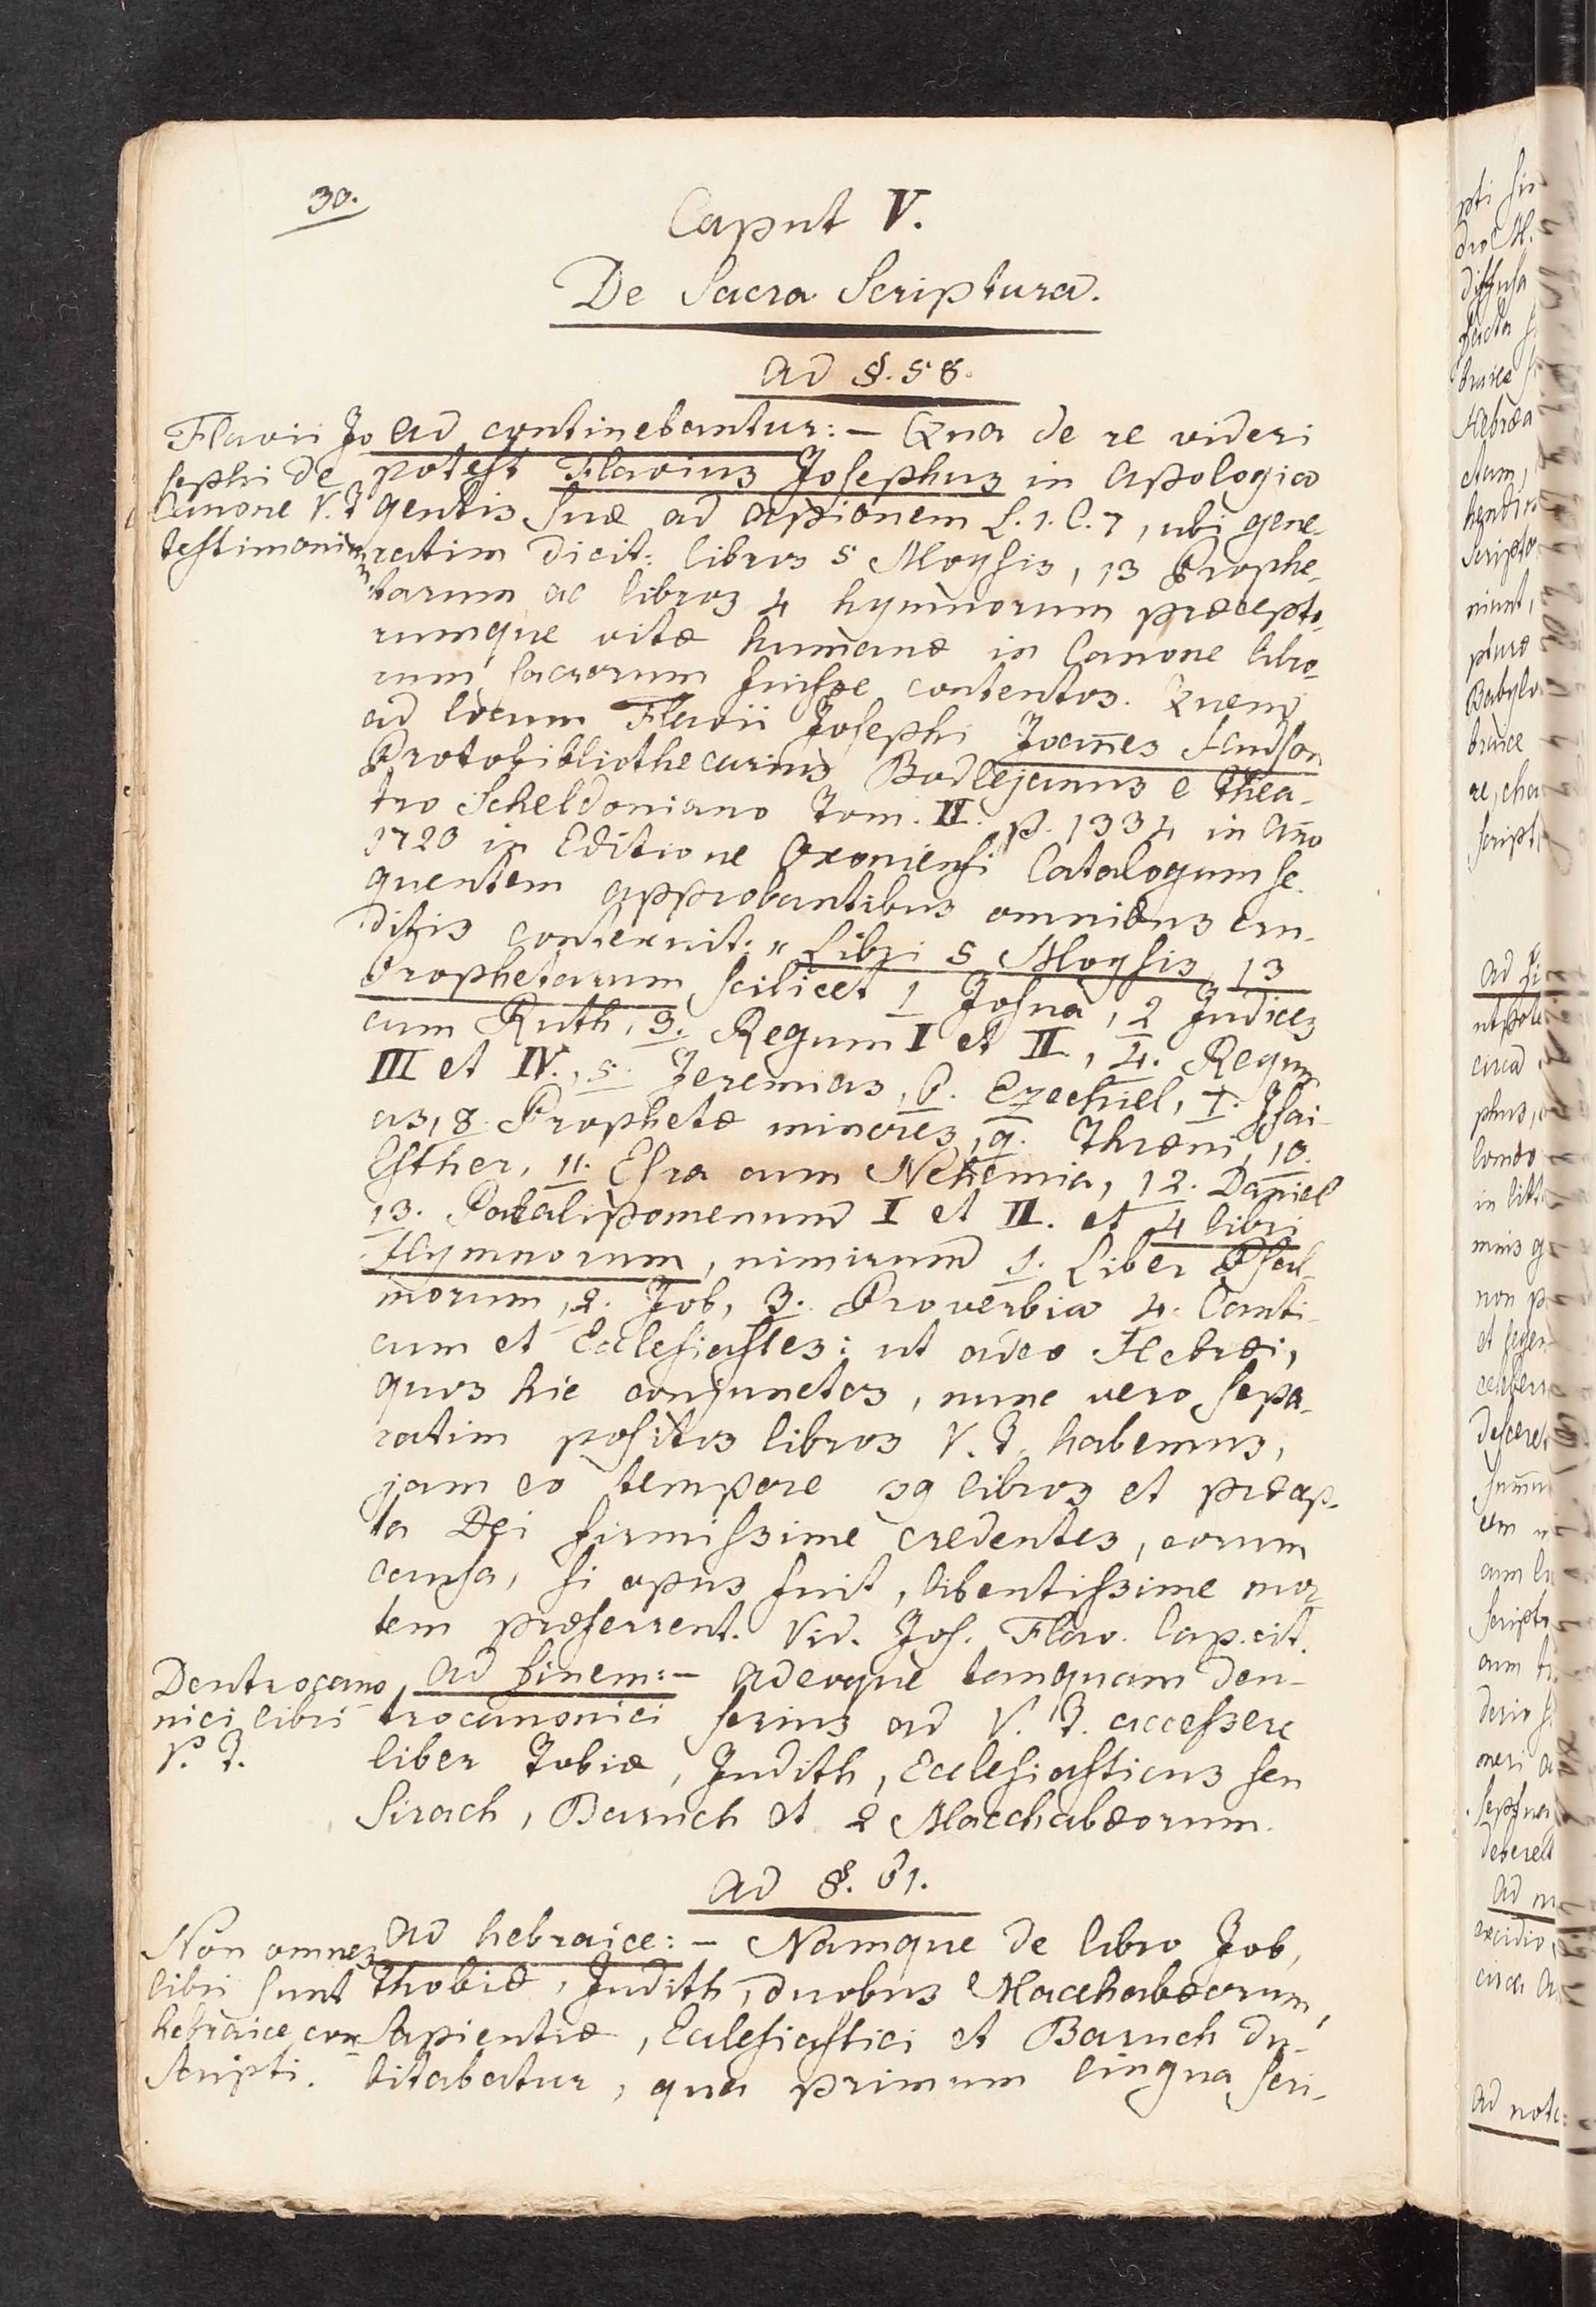 30.
Caput V.
De Sacra Scriptura.
ad §. 58.
Flavii Jo
sephi de
Canone V. T
testimonium
ad continebantur: – Qua de re videri
potest Flavius Josephus in Apologia
gentis suæ ad Appionem L. 1. C. 7, ubi gene-
ratim dicit: libros 5 Moysis, 13 Prophe-
tarum ac libros 4 hymnorum præcepto-
rumque vitæ humanæ in Canone libro-
rum sacrorum fuisse contentos. Quem
ad locum Flavii Josephi Joannes Hudson
Protobibliothecarius Bodlejanus e Thea-
tro Scheldoniano Tom. II. p. 1334 in Año
1720 in Editione Oxoniensi Catalogum se-
quentem approbantibus omnibus eru-
ditis contexuit: „ Libri 5 Moysis, 13
Prophetarum scilicet 1 Josua, 2 Judices
cum Ruth, 3. Regum I et II, 4. Regum
III et IV., 5. Jeremias, 6. Ezechiel, 7. Isai-
as, 8. Prophetæ minores, 9. Threni, 10.
Esther, 11. Esra cum Nehemia, 12. Daniel
13. Paralipomenum I et II. et 4 libri
Hymnorum, nimirum 1. Liber Psal-
morum, 2. Job, 3. Proverbia 4. Canti-
cum et Ecclesiastes: ut adeo Hebræi,
quos hic conjunctos, nunc vero sepa-
ratim positos libros V. T. habemus,
jam eo tempore 39 libros et præcep-
ta Dei firmissime credentes, eorum
causa, si opus fuit, libentissime mor
tem præferrent. Vid. Jos. Flav. Cap. cit.
Deutrocano
nici libri
V. T.
ad finem: – adeoque tamquam deu-
trocanonici serius ad V. T. accessere
liber Tobiæ, Judith, Ecclesiasticus seu
Sirach, Baruch et 2 Macchabæorum.
ad §. 61.
Non omnes
libri sunt
hebraice con
scripti.
ad hebraice: – Namque de libro Job,
Thobiæ, Judith, duobus Macchabæorum,
Sapientiæ, Ecclesiastici et Baruch du-
bitabatur, qua primum lingua scri-